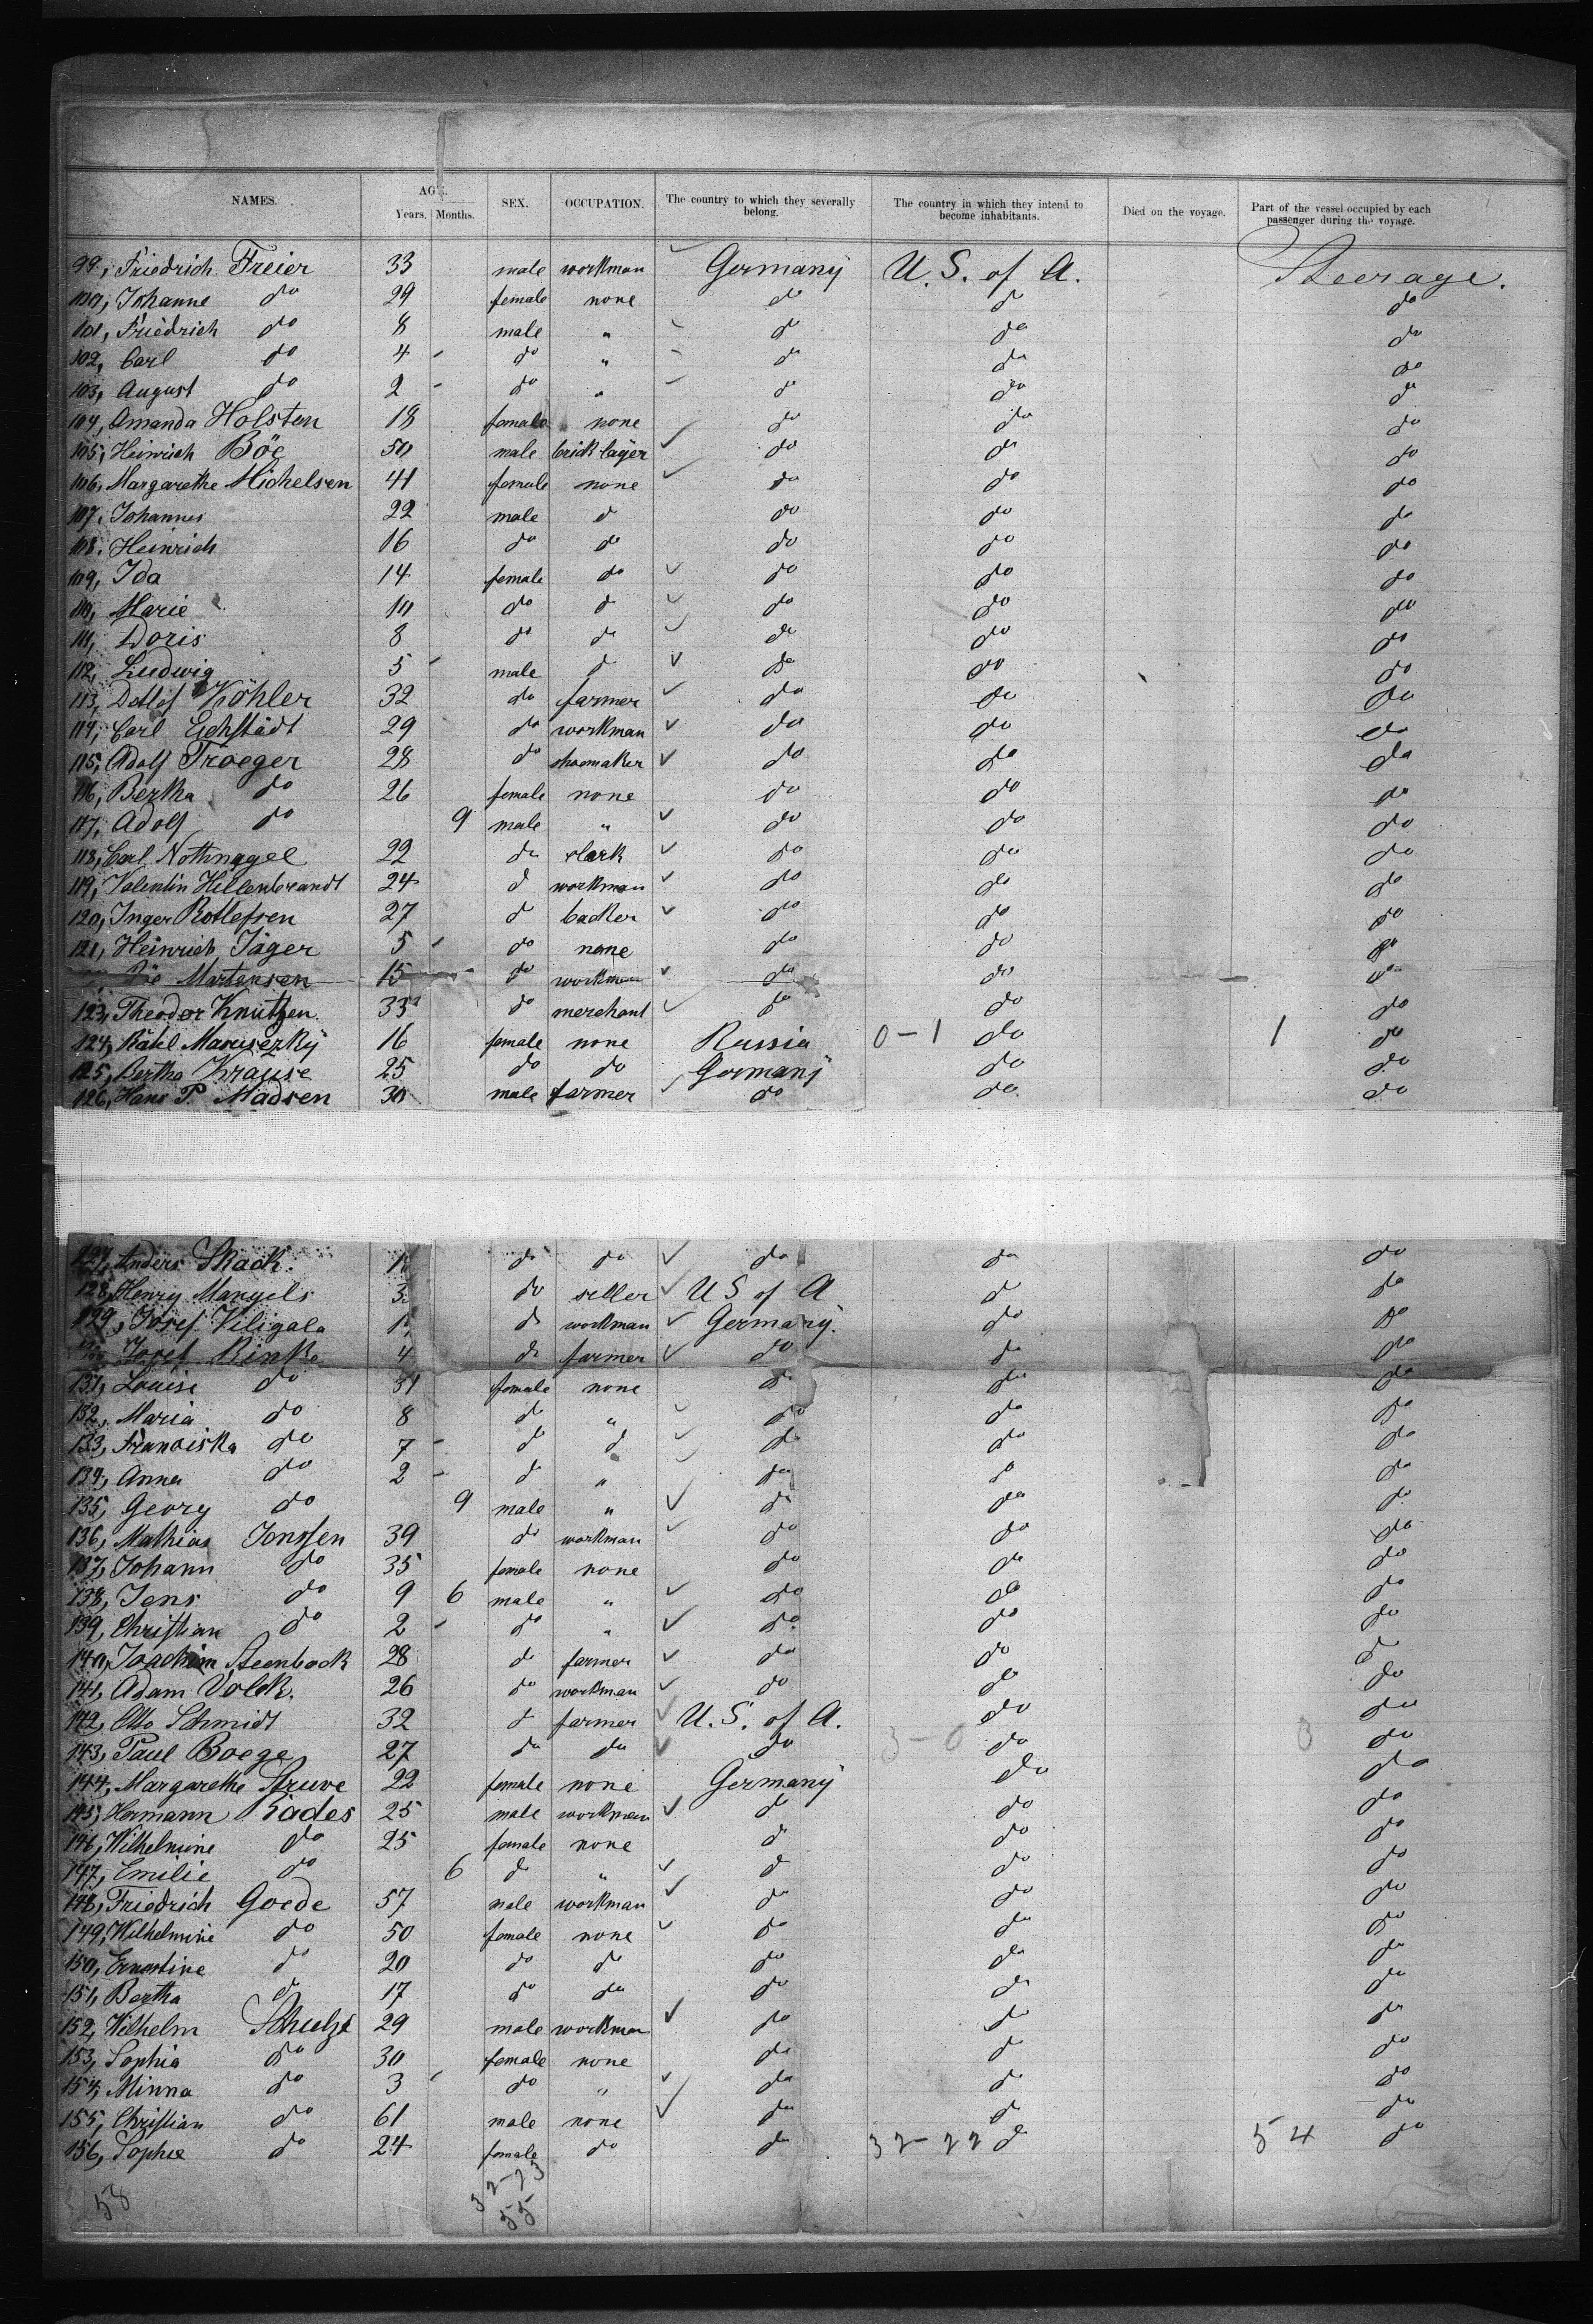 NAMES. AGE. Years. Months. SEX. OCCUPATION. The country to which they severally belong. The country in which they intend to become inhabitants. Died on the voyage. Part of the vessel occupied by each passenger during the voyage.
99, Friedrich Freier 33 male workman Germany U. S. of A. Steerage.
100, Johanne do 29 female none do do do
101, Friedrich do 8 male " do do do
102, Carl do 4 do " do do do
103, August do 2 do " do do do
104, Amanda Holsten 18 female none do do do
105, Heinrich Böe 50 male bricklayer do do do
106, Margarethe Michelsen 41 female none do do do
107, Johannes 22 male d do do do
108, Heinrich 16 do do do do do
109, Ida 14 female do do do do
110, Marie 10 do d do do do
111, Doris 8 do do do do do
112, Ludwig 5 male d do do do
113, Detlef Köhler 32 do farmer do do do
114, Carl Eichstädt 29 do workman do do do
115, Adolf Troeger 28 do shoemaker do do do
116, Bertha do 26 female none do do do
117, Adolf do 9 male " do do do
118, Carl Nothnagel 22 do clerk do do do
119, Valentin Hillenbrandt 24 d workman do do do
120, Inger Rotlefsen 27 d backer do do do
121, Heinrich Jäger 5 do none do do do
Martensen 15 do workman do do do
123, Theodor Knutzen 33 do merchant do do do
124, Rahel 16 female none Russia 0-1 do 1 do
125, Bertha Krause 25 do do Germany do do
126, Hans P. Madsen 30 male farmer do do do
127, Anders Skack. 1 do do do do do
128, Henry Mangels 3 do seller U S of A d do
129, Josef Viligala 1 do workman Germany. do do
Josef Rinke 4 do farmer do do do
131, Louise do 31 female none do do do
132, Maria do 8 do " do do do
133, Franciska do 7 d d do do do
134, Anna do 2 d " do do do
135, Georg do 9 male " do do do
136, Mathias Jonssen 39 do workman do do do
137, Johann do 35 female none do do do
138, Jens do 9 6 male " do do do
139, Christian do 2 do " do do do
140, Joachim Steenbock 28 d farmer do do do
141, Adam Volck. 26 do workman do do do
142, Otto Schmidt 32 d farmer U. S. of A. do do
143, Paul Boege 27 do do do 3-0 do 3 do
144, Margarethe Struve 22 female none Germany do do
145, Hermann Rades 25 male workman do do do
146, Wilhelmine do 25 female none d do do
147, Emilie do 6 d " d do do
148, Friedrich Goede 57 male workman do do do
149, Wilhelmine do 50 female none do do do
150, Ernestine d 20 do do do do do
151, Bertha d 17 do do do do do
152, Wilhelm Schulze 29 male workman do do do
153, Sophia do 30 female none do d do
154, Minna do 3 do " do d do
155, Christian do 61 male none do d do
156, Sophie do 24 female do do 32-22 d 54 do
58 32-23
55